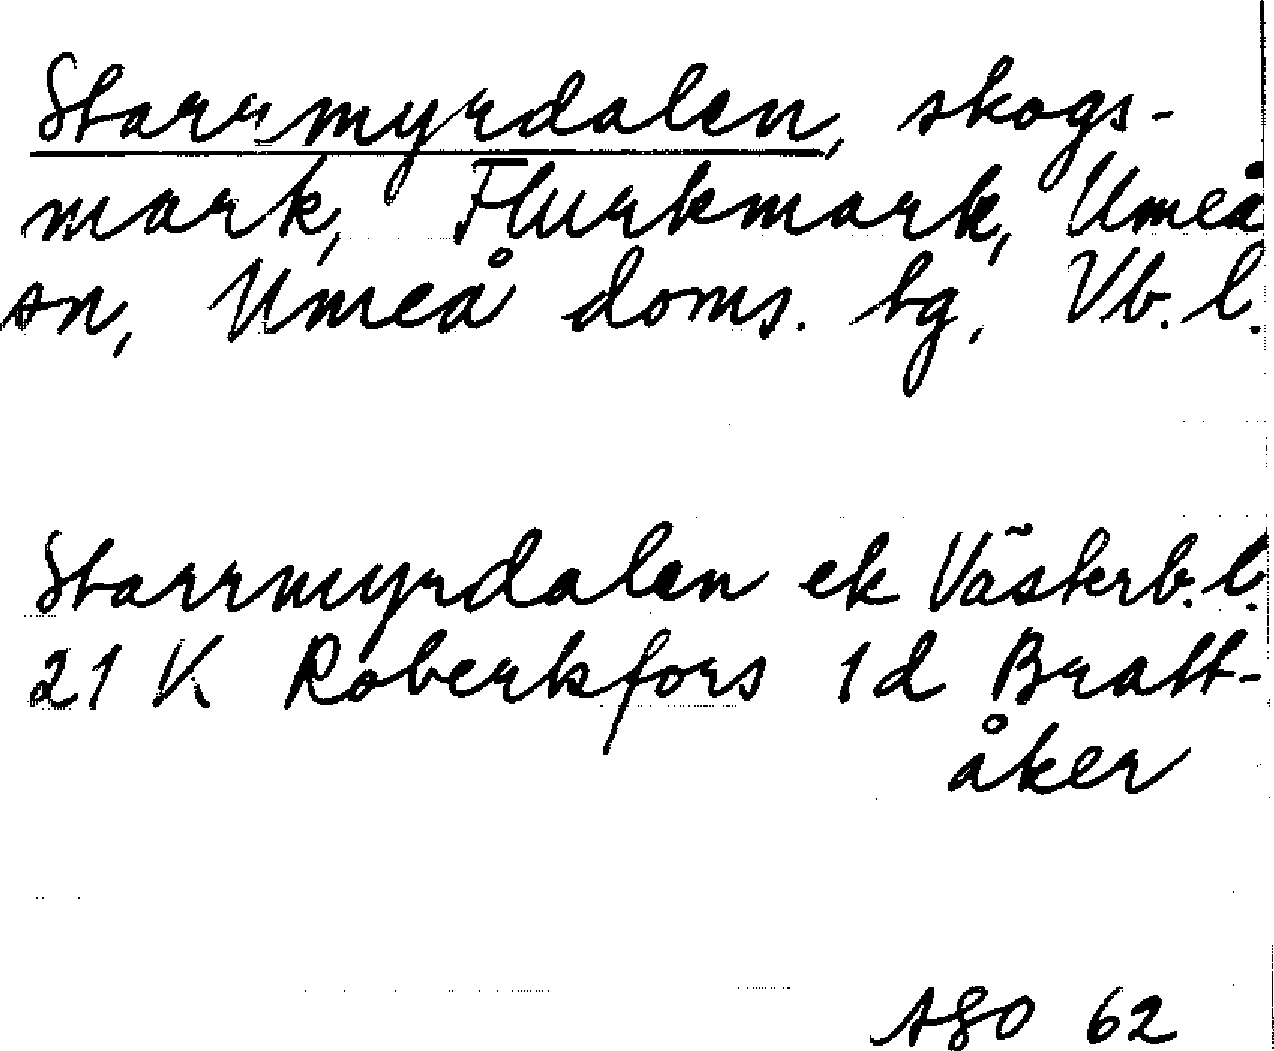 Starrmyrdalen, skogs-
mark, Flurkmark, Umeå
sn, Umeå doms. tg, Vb. l.
Starrmyrdalen ek Västerb. l.
21 K Robertsfors 1 d Bratt-
åker
ASO 62